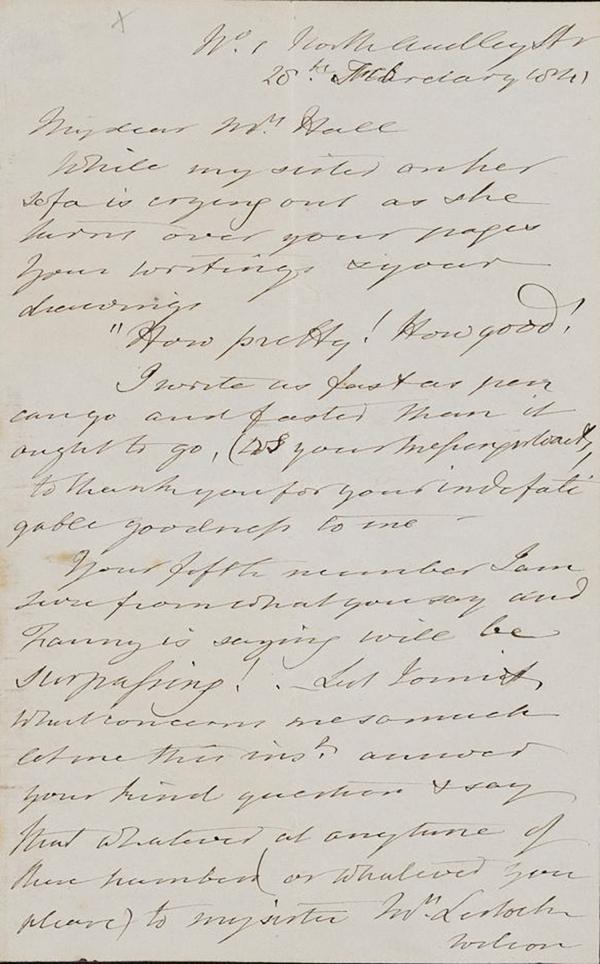 No. 1 North Audley St
28th February 1841
My dear Mrs. Hall
While my sister on her
sofa is crying out as she
turns over your pages
Your writings & your
drawings
"How pretty! How good!
I write as fast as pen
can go and faster than it
ought to go, (as your messenger waits)
to thank you for your indefati
gable goodness to me –
Your fifth number I am
sure from what you say and
Fanny is saying will be
surpassing! . – Lest I omit
what concerns me so much
let me this inst. answer
your kind question & say
that whatever at anytime of
these numbers (or whatever you
please) to my sister Mrs. Lestock
Wilson